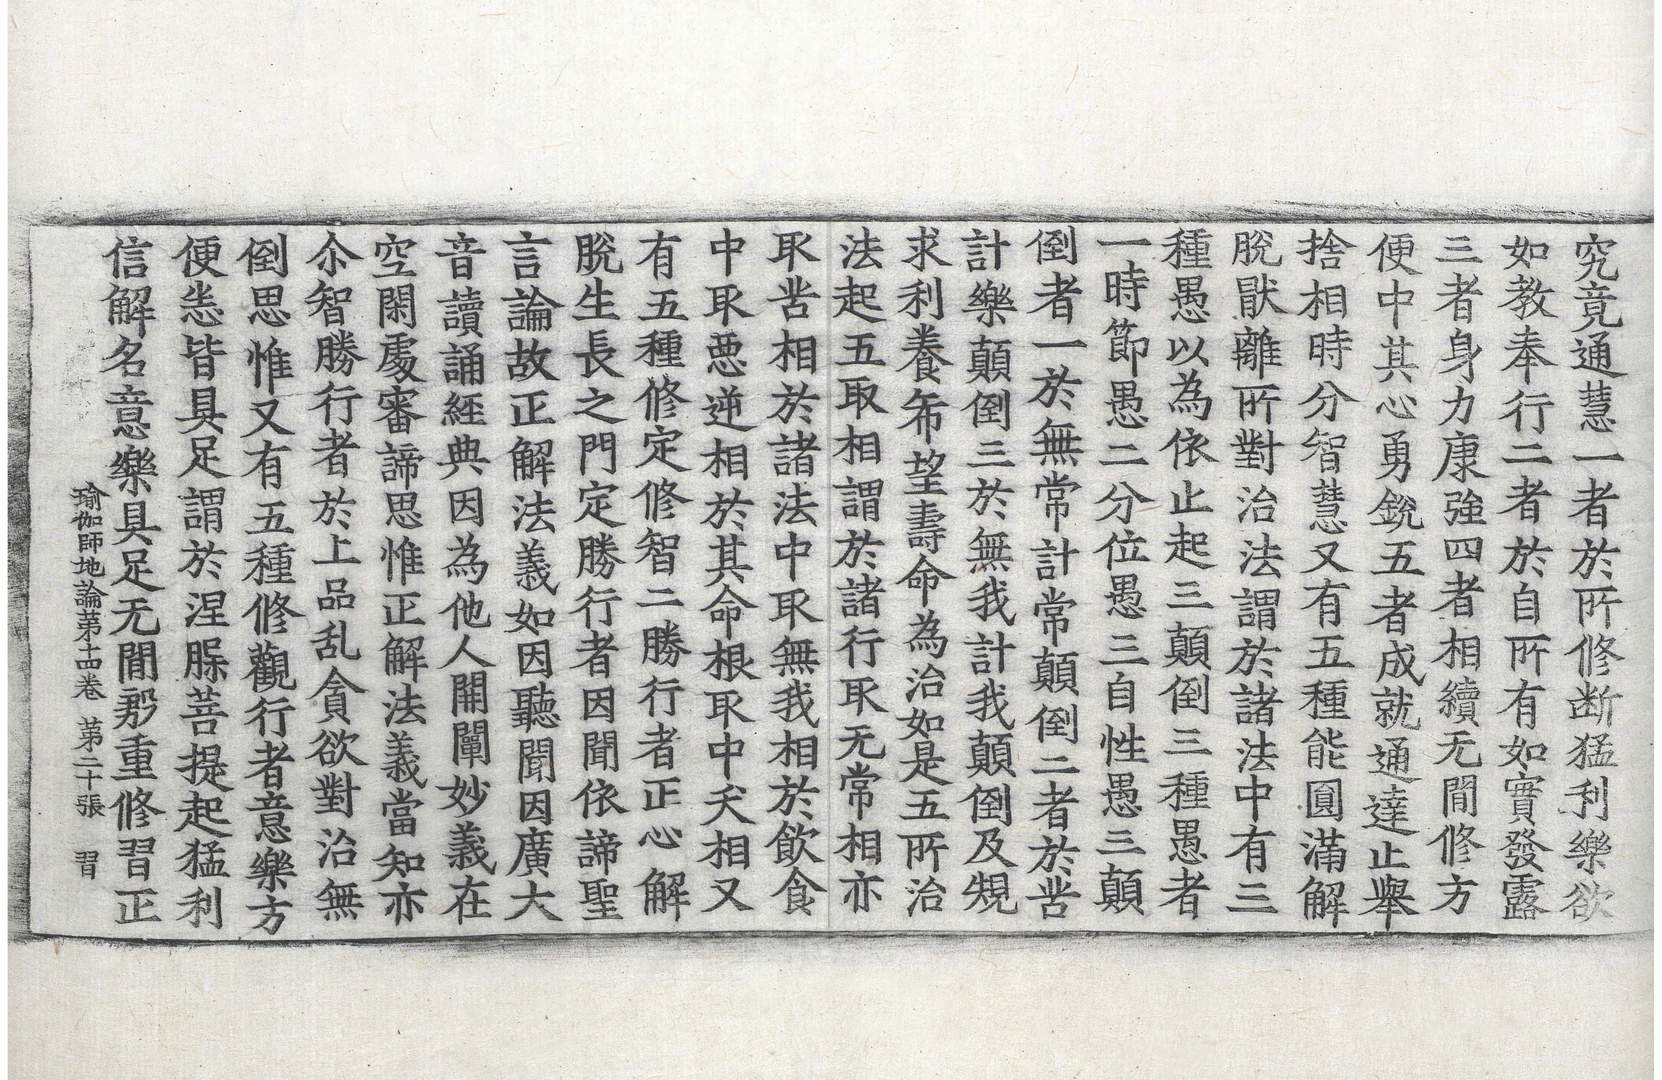 究竟通慧一者於所修断猛利樂欲
如教奉行二者於自所有如實發露
三者身力康強四者相續无閒修方
便中其心勇銳五者成就通達止舉
捨相時分智慧又有五種能圎滿解
脫猒離所對治法謂於諸法中有三
種愚以為依止起三顛倒三種愚者
一時節愚二分位愚三自性愚三顛
倒者一於無常計常顛倒二者於苦
計樂顛倒三於無我計我顛倒及覬
求利養希望壽命為治如是五所治
法起五取相謂於諸行取无常相亦
取苦相於諸法中取無我相於飲食
中取惡逆相於其命根取中夭相又
有五種修定修智二勝行者正心解
脫生長之門定勝行者因聞依諦聖
言論故正解法義如因聽聞因廣大
音讀誦經典因為他人開闡妙義在
空閑處審諦思惟正解法義當知亦
尒智勝行者於上品乱貪欲對治無
倒思惟又有五種修觀行者意樂方
便恙皆具足謂於涅槃菩提起猛利
信解名意樂具足无閒殷重修習正
瑜伽師地論苐十四卷 苐二十張 習